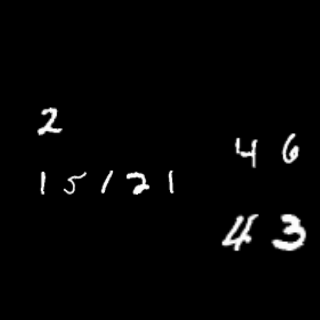 2
15121
46
43